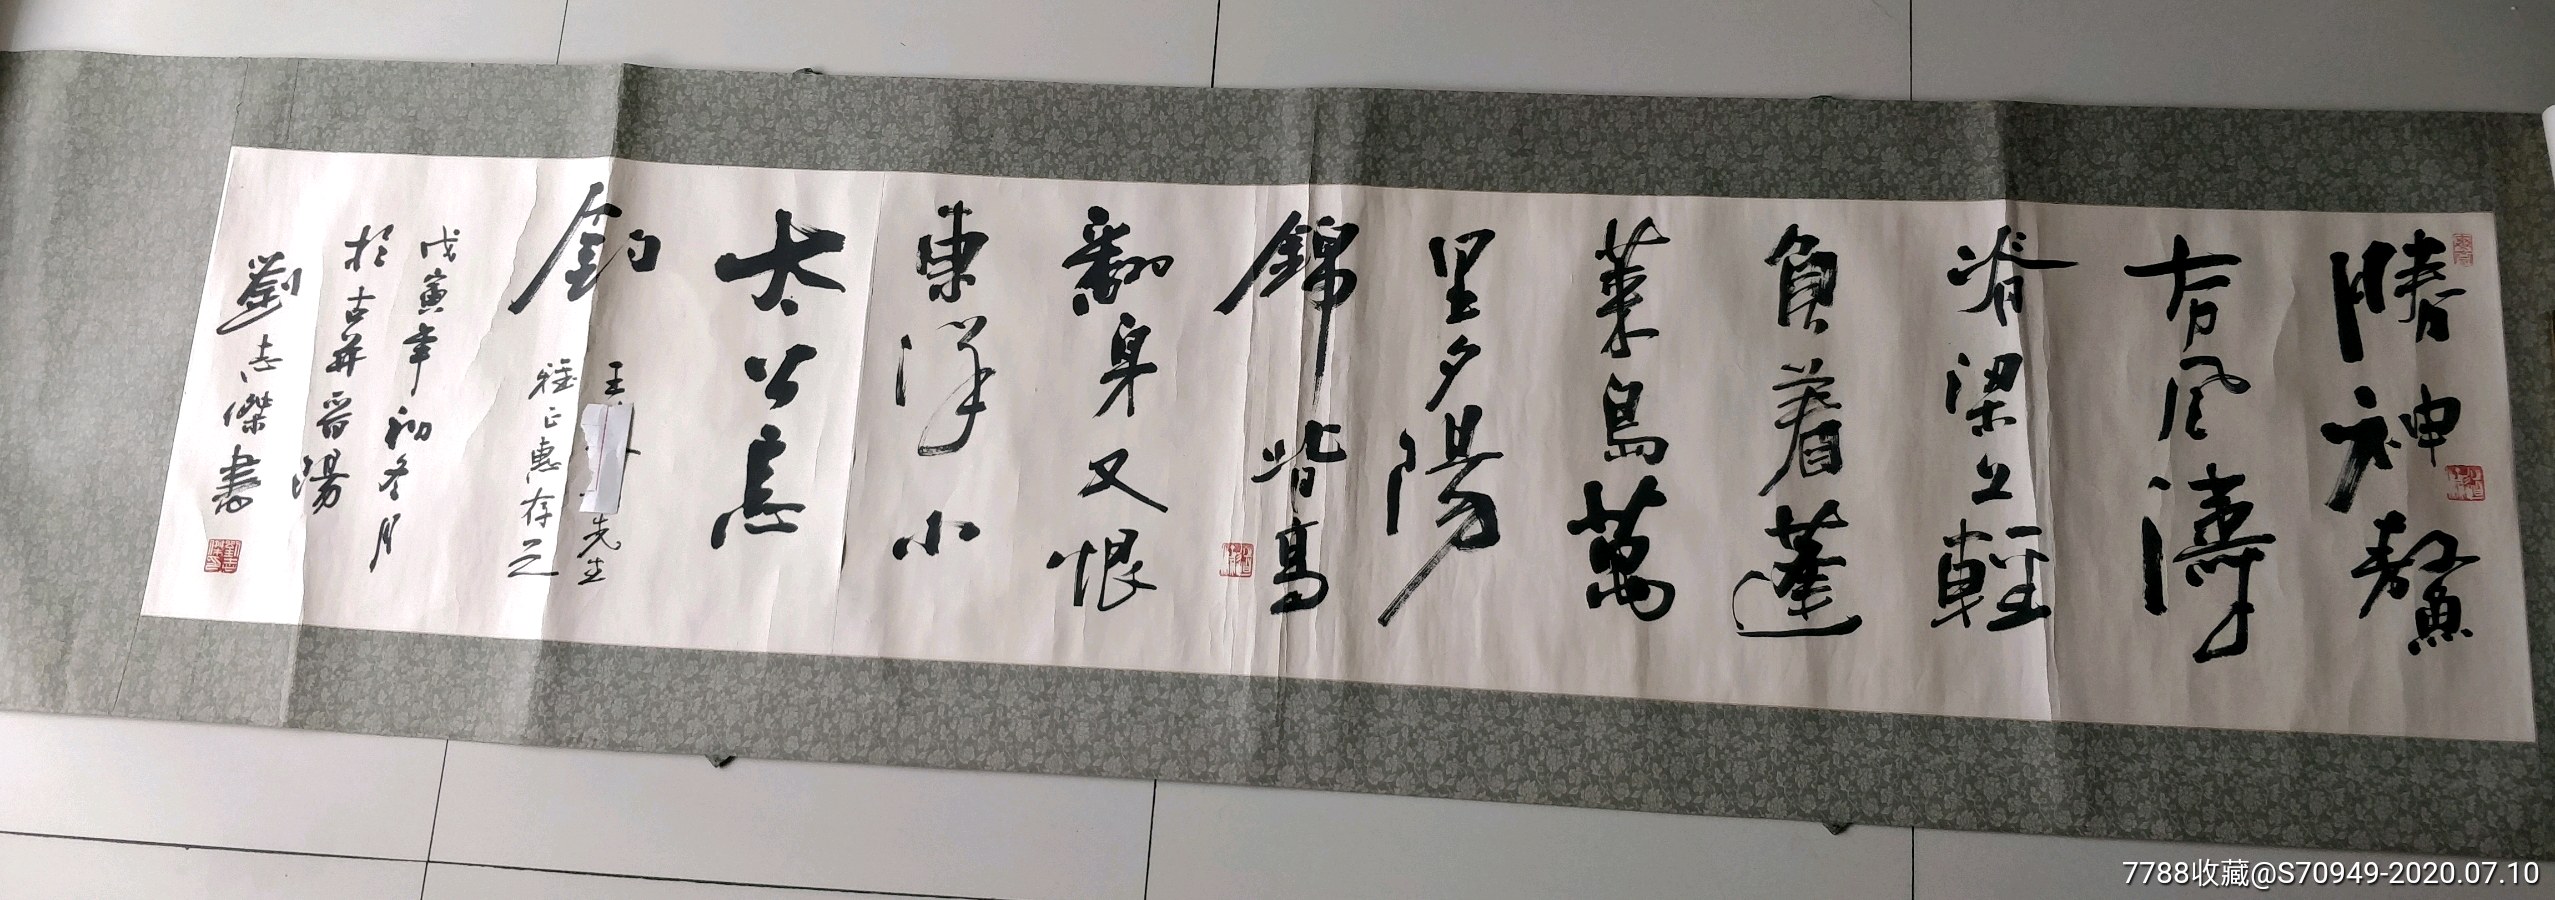 勝神鰲
夯風濤
脊梁上輕
負着蓬
萊島萬
里夕陽
錦背高
翻身又恨
東洋小
太公怎
釣
王 先生
雅正惠存之
戊寅年初冬月
於古并晉陽
劉志傑書
7788收藏@S70949-2020.07.10